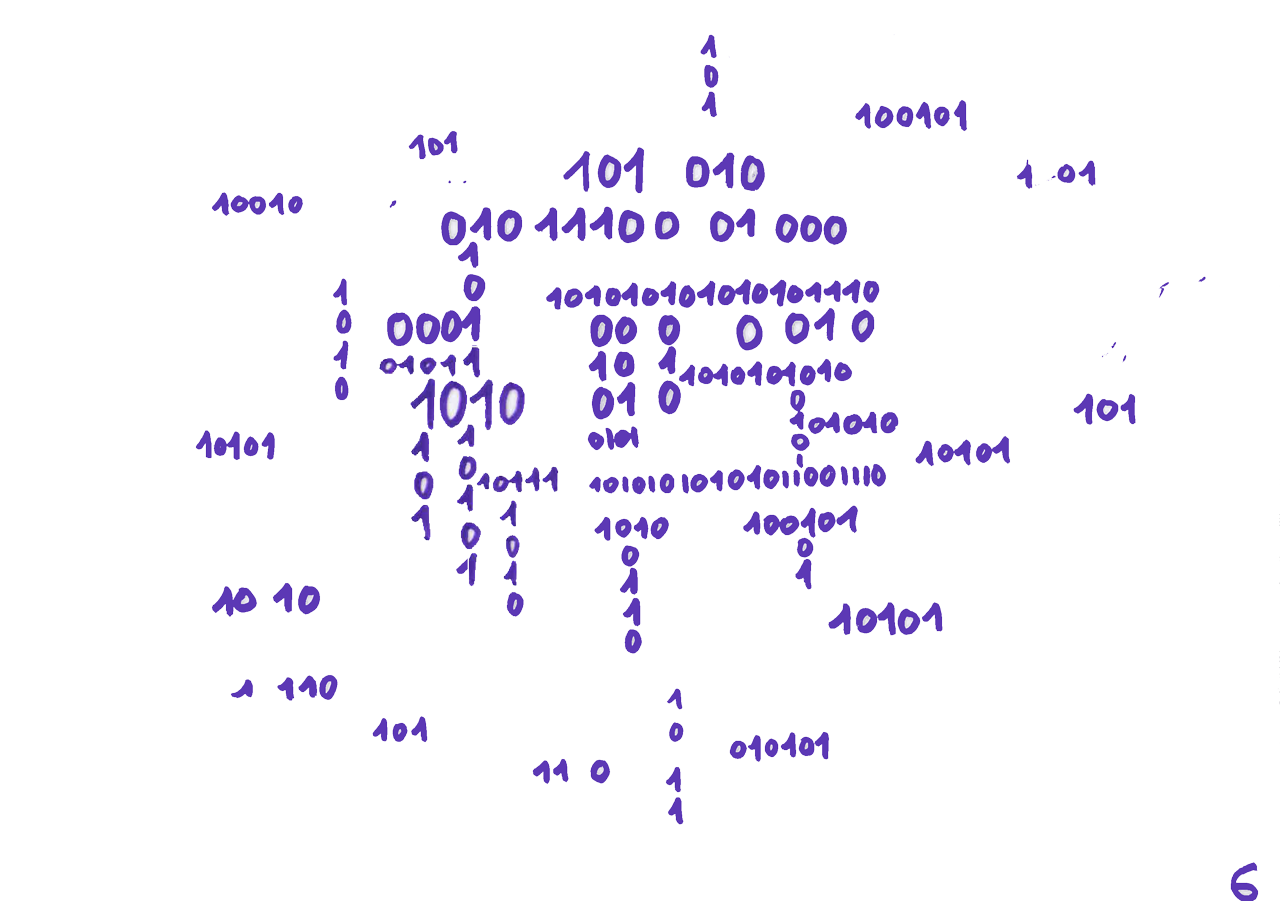 1
0
1
100101
101
101 010
1 01
10010
010 11100 01 000
1
0
1
0
1
0
101010101010101110
0001
00 0 0 010
01011
10 1
1010101010
1010
01 0
0
101010
0
1
101
1
0
1
1
0
1
0
1
0101
10101
10101
10111
101010 10101011001110
1
0
1
0
1010
0
1
1
0
100101
0
1
10 10
10101
1 110
101
1
0
1
1
010101
11 0
6